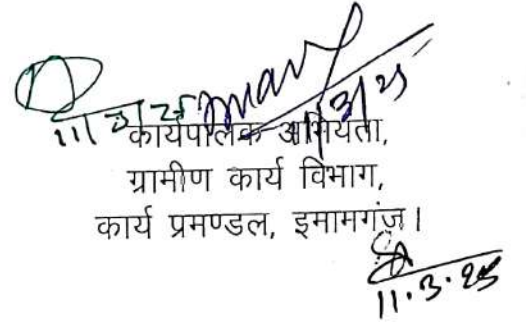 11/3/25
11/3/25
कार्यपालक अभियंता,
ग्रामीण कार्य विभाग,
कार्य प्रमण्डल, इमामगंज।
11.3.25